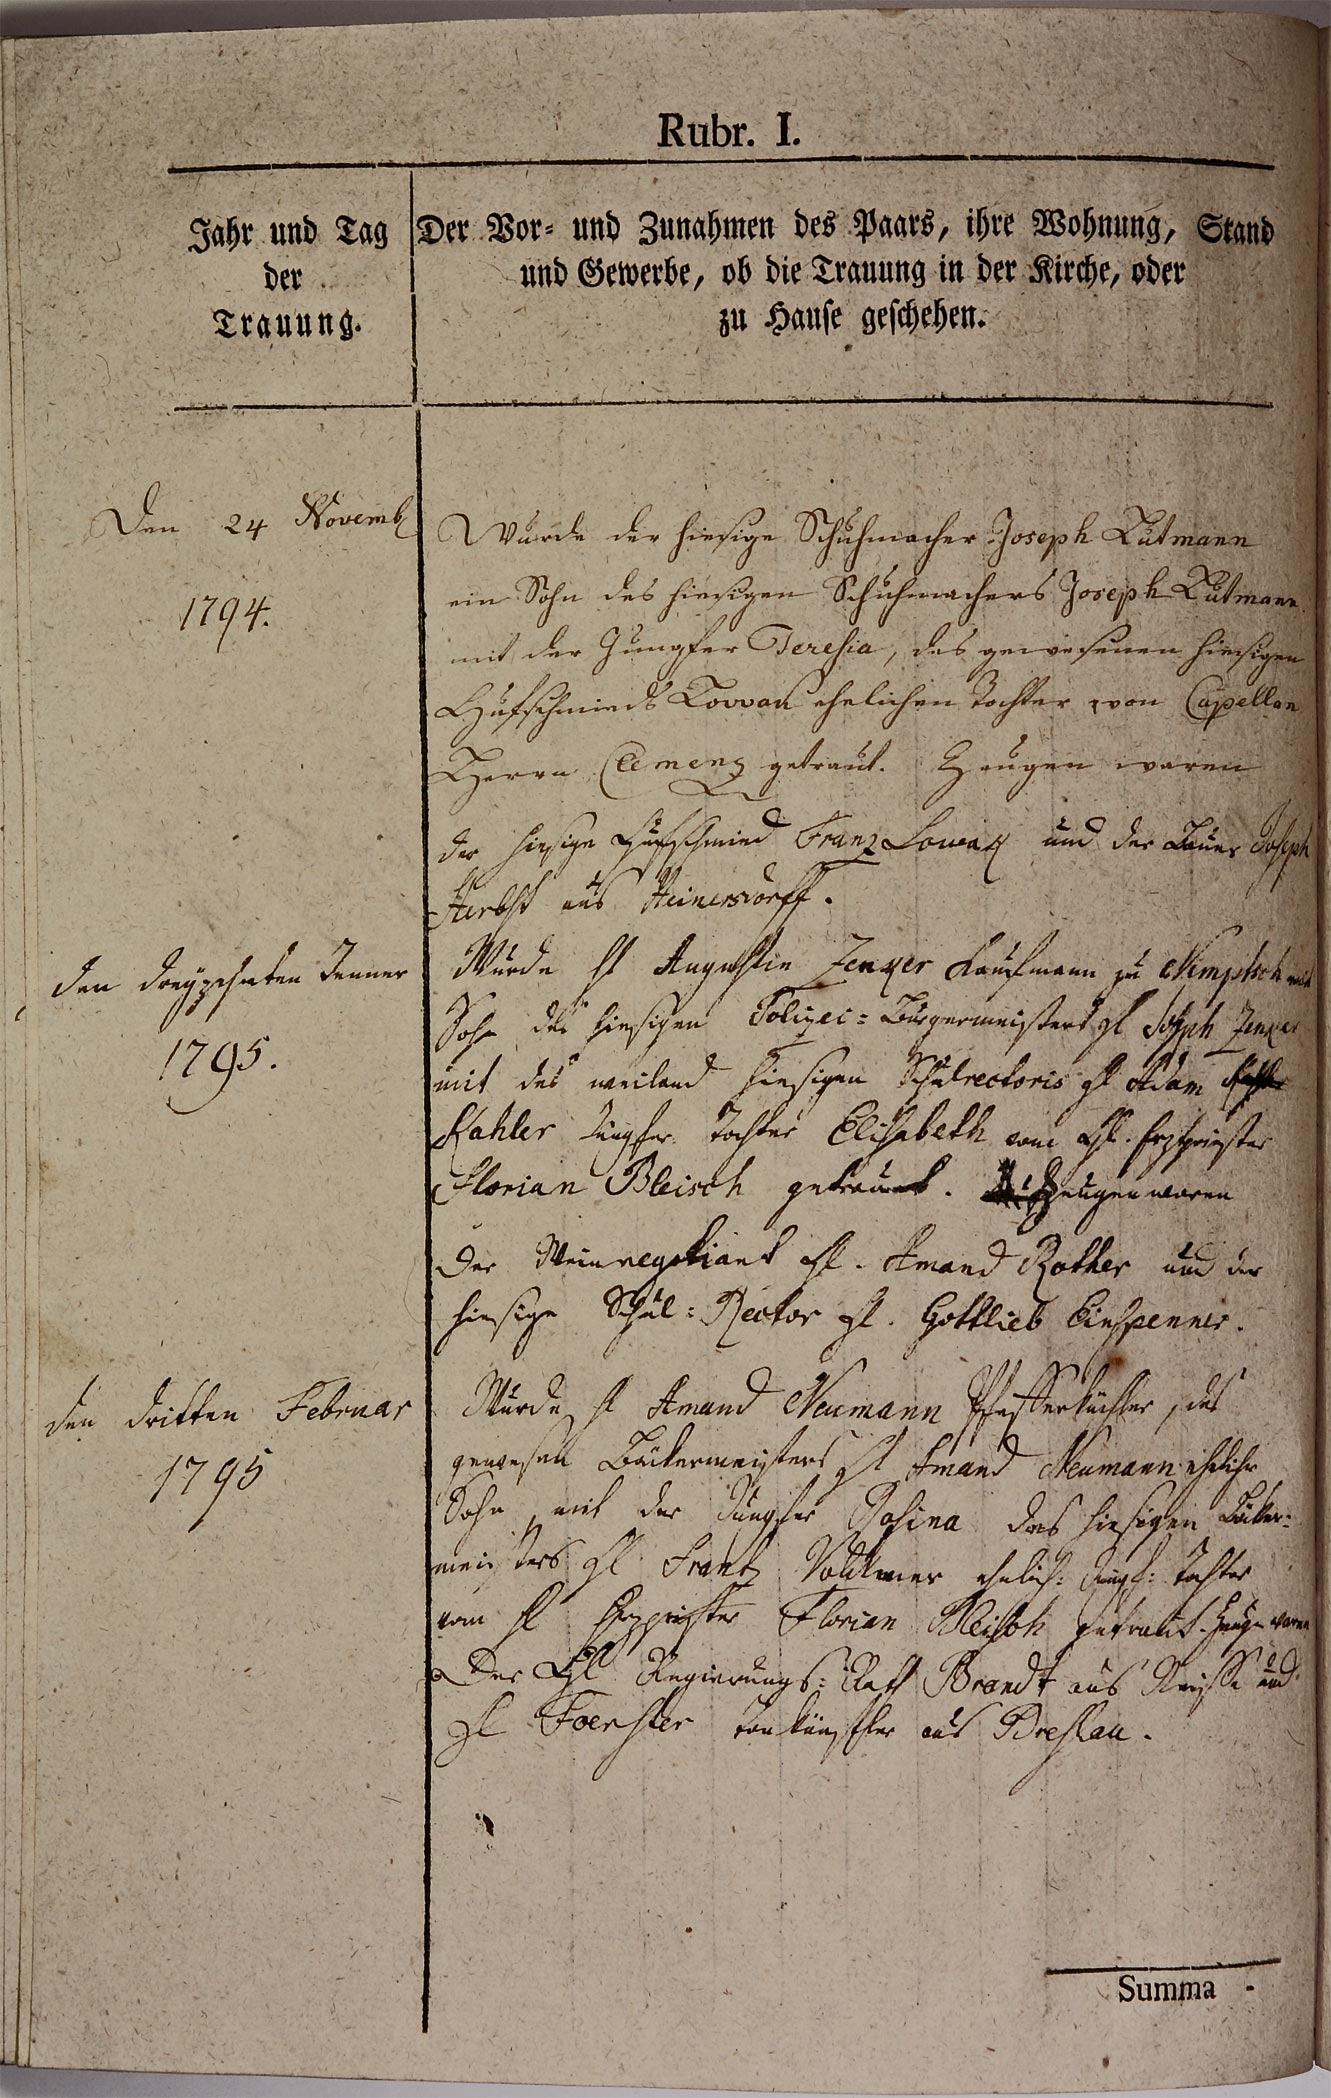 Rubr. I.
Jahr und Tag
der
Trauung.
Der Vor- und Zunahmen des Paars, ihre Wohnung, Stand
und Gewerbe, ob die Trauung in der Kirche, oder
zu Hause geschehen.
Den 24 Novemb
1794.
Wurde der hiesige Schuhmacher Joseph Lutmann
ein Sohn des hiesigen Schuhmachers Joseph Lutmann
mit der Jungfer Teresia, des gewesenen hiesigen
Hufschmieds ehelichen Tochter von Capellan
Herrn Clemenz getraut. Zeugen waren
der hiesige Hufschmied Franz und der Bauer Joseph
Herbst aus Heinersdorff.
den dreyzehnten Jenner
1795.
Wurde H Augustin Zenker Kaufmann zu Nimptsch
Sohn des hiesigen Polizei-Bürgermeisters H Joseph Zenker
mit des weiland hiesigen Schulrectoris H Adam
Kahler Jungfer Tochter Elisabeth vom H. Erzpriester
Florian Bleisch getraut. Zeugen waren
Der Weinnegotiant H. Amand Rother und der
hiesige Schul-Rector H. Gottlieb Einspenner.
den dritten Februar
1795
Wurde H Amand Neumann Pfefferküchler, des
gewesen Bäckermeisters H Amand Neumann
Sohn, mit der Jungfer Rosina des hiesigen Bäcker-
meisters H Frantz Volkmer ehelich: Jungf: Tochter
vom H Erzpriester Florian Bleisch getraut. waren
Der H Regierungs-Rath Brandt aus Neisse und
H Foerster Tonkünstler aus Breslau.
Summa -